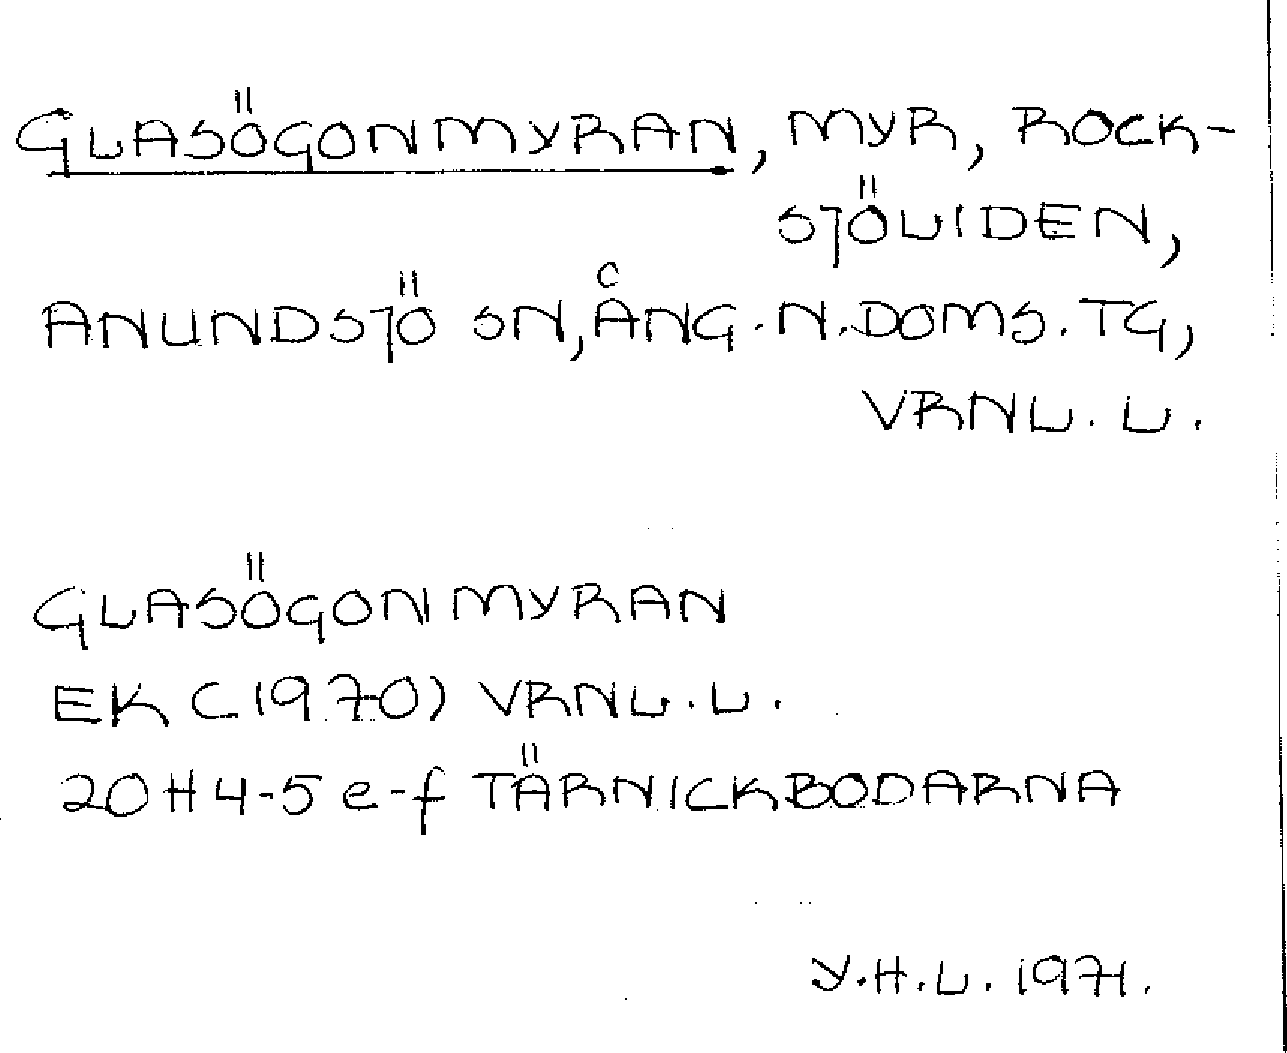 GLASÖGONMYRAN, MYR, ROCK-
SJÖLIDEN,
ANUNDSJÖ SN, ÅNG. N. DOMS. TG,
VRNL. L.
GLASÖGONMYRAN
EK C (1970) VRNL. L.
20H 4-5 e-f TÄRNICKBODARNA
Y.H.L. 1971.